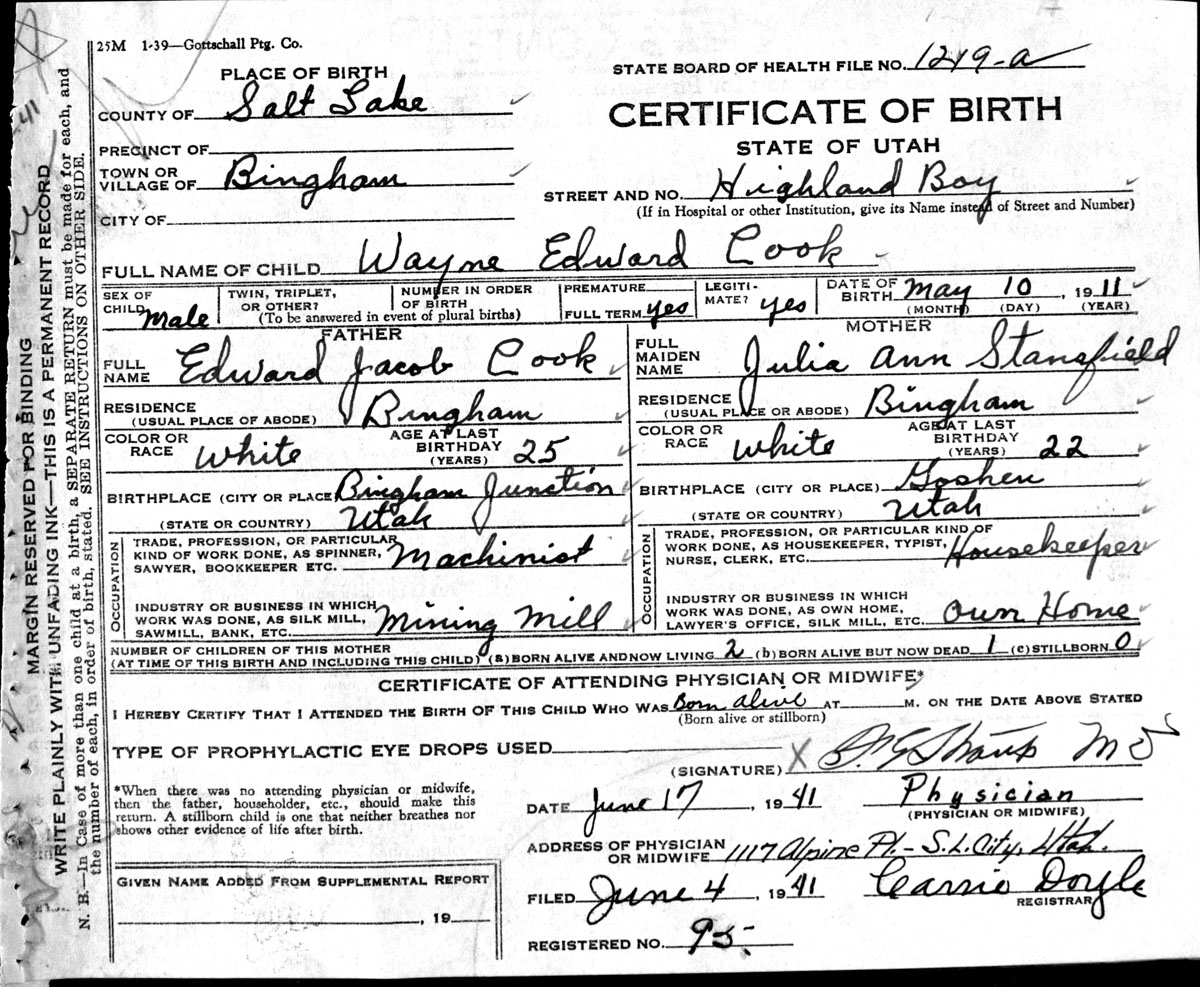 25M 1-39—Gottschall Ptg. Co.
STATE BOARD OF HEALTH FILE NO. 1219-a
PLACE OF BIRTH
COUNTY OF Salt Lake
CERTIFICATE OF BIRTH
STATE OF UTAH
PRECINCT OF
TOWN OR VILLAGE OF Bingham
STREET AND NO. Highland Boy
(If in Hospital or other Institution, give its Name instead of Street and Number)
CITY OF
FULL NAME OF CHILD Wayne Edward Cook
SEX OF CHILD Male
TWIN, TRIPLET, OR OTHER?
NUMBER IN ORDER OF BIRTH
(To be answered in event of plural births)
PREMATURE
FULL TERM yes
LEGITIMATE? yes
DATE OF BIRTH May 10, 1911
(MONTH) (DAY) (YEAR)
FATHER
FULL NAME Edward Jacob Cook
RESIDENCE (USUAL PLACE OF ABODE) Bingham
COLOR OR RACE White
AGE AT LAST BIRTHDAY (YEARS) 25
BIRTHPLACE (CITY OR PLACE) Bingham Junction
(STATE OR COUNTRY) Utah
OCCUPATION
TRADE, PROFESSION, OR PARTICULAR
KIND OF WORK DONE, AS SPINNER,
SAWYER, BOOKKEEPER ETC. Machinist
INDUSTRY OR BUSINESS IN WHICH
WORK WAS DONE, AS SILK MILL,
SAWMILL, BANK, ETC. Mining Mill
MOTHER
FULL MAIDEN NAME Julia Ann Stansfield
RESIDENCE (USUAL PLACE OR ABODE) Bingham
COLOR OR RACE White
AGE AT LAST BIRTHDAY (YEARS) 22
BIRTHPLACE (CITY OR PLACE) Goshen
(STATE OR COUNTRY) Utah
OCCUPATION
TRADE, PROFESSION, OR PARTICULAR KIND OF
WORK DONE, AS HOUSEKEEPER, TYPIST,
NURSE, CLERK, ETC. Housekeeper
INDUSTRY OR BUSINESS IN WHICH
WORK WAS DONE, AS OWN HOME,
LAWYER'S OFFICE, SILK MILL, ETC. Own Home
NUMBER OF CHILDREN OF THIS MOTHER
(AT TIME OF THIS BIRTH AND INCLUDING THIS CHILD) (a) BORN ALIVE AND NOW LIVING 2 (b) BORN ALIVE BUT NOW DEAD 1 (c) STILLBORN 0
CERTIFICATE OF ATTENDING PHYSICIAN OR MIDWIFE*
I HEREBY CERTIFY THAT I ATTENDED THE BIRTH OF THIS CHILD WHO WAS Born alive AT M. ON THE DATE ABOVE STATED
(Born alive or stillborn)
TYPE OF PROPHYLACTIC EYE DROPS USED
(SIGNATURE) X MD
*When there was no attending physician or midwife,
then the father, householder, etc., should make this
return. A stillborn child is one that neither breathes nor
shows other evidence of life after birth.
DATE June 17, 1941
Physician
(PHYSICIAN OR MIDWIFE)
ADDRESS OF PHYSICIAN OR MIDWIFE 1117 Alpine Pl.- S.L. City, Utah.
GIVEN NAME ADDED FROM SUPPLEMENTAL REPORT
, 19
FILED June 4, 1941
Carrie Doyle
REGISTRAR
REGISTERED NO. 95.
MARGIN RESERVED FOR BINDING
WRITE PLAINLY WITH UNFADING INK—THIS IS A PERMANENT RECORD
N. B.—In Case of more than one child at a birth, a SEPARATE RETURN must be made for each, and
the number of each, in order of birth, stated. SEE INSTRUCTIONS ON OTHER SIDE.